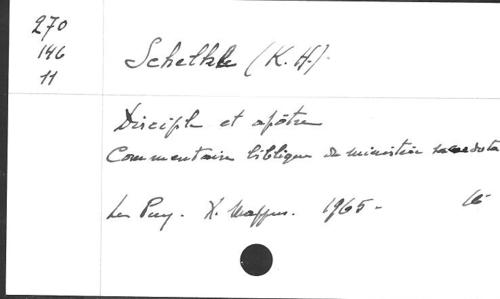 270
146
11
Schelkle (K. H.).
Disciple et apôtre
Commentaire biblique du ministère sacerdotal
Le Puy. X. Mappus. 1965 -